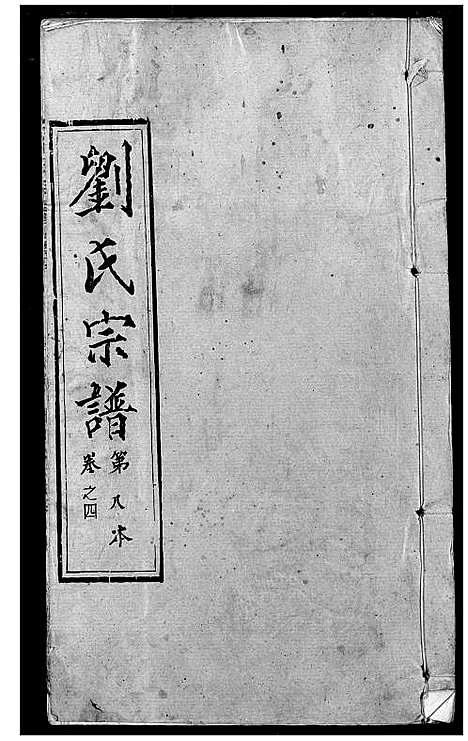 劉氏宗譜
第八本
卷之四